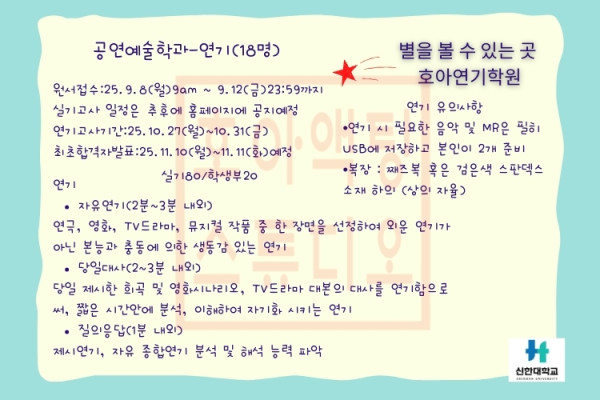 공연예술학과-연기(18명)
별을 볼 수 있는 곳
호아연기학원
원서접수:25.9.8(월)9am ~ 9.12(금)23:59까지
실기고사 일정은 추후에 홈페이지에 공지예정
연기고사기간:25.10.27(월)~10.31(금)
최초합격자발표:25.11.10(월)~11.11(화)예정
실기80/학생부20
연기
• 자유연기(2분~3분 내외)
연극, 영화, TV드라마, 뮤지컬 작품 중 한 장면을 선정하여 외운 연기가
아닌 본능과 충동에 의한 생동감 있는 연기
• 당일대사(2~3분 내외)
당일 제시한 희곡 및 영화시나리오, TV드라마 대본의 대사를 연기함으로
써, 짧은 시간안에 분석, 이해하여 자기화 시키는 연기
• 질의응답(1분 내외)
제시연기, 자유 종합연기 분석 및 해석 능력 파악
연기 유의사항
•연기 시 필요한 음악 및 MR은 필히
USB에 저장하고 본인이 2개 준비
•복장 : 째즈복 혹은 검은색 스판덱스
소재 하의 (상의 자율)
호아액팅
스튜디오
신한대학교
SHINHAN UNIVERSITY